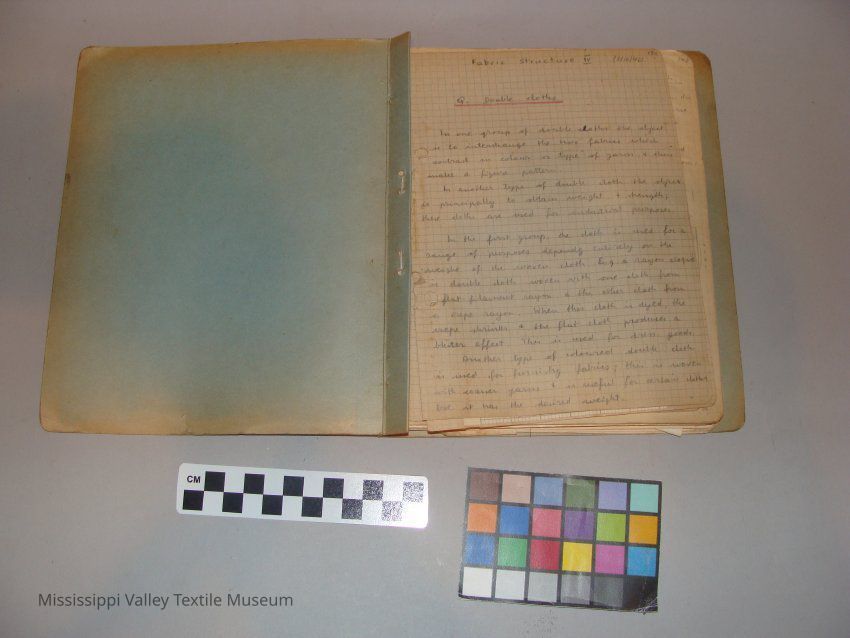 Fabric Structure IV
Q. Double cloths
In one group of double cloths the object
is to interchange the two fabrics which
contrast in colour or type of yarn & thus
makes a figure pattern.
In another type of double cloth the object
is principally to obtain weight & strength;
these cloths are used for industrial purposes.
In the first group, the cloth is used for a
range of purposes depending entirely on the
weight of the woven cloth. E.g. a rayon
is double cloth woven with one cloth from
flat filament rayon & the other cloth from
crepe rayon. When this cloth is dyed, the
crepe shrinks & the flat cloth produces a
blister effect. This is used for dress goods.
Another type of coloured double cloth
is used for furnishing fabrics; this is woven
with coarser yarns & is useful for certain cloths
but it has the desired weight.
CM
Mississippi Valley Textile Museum